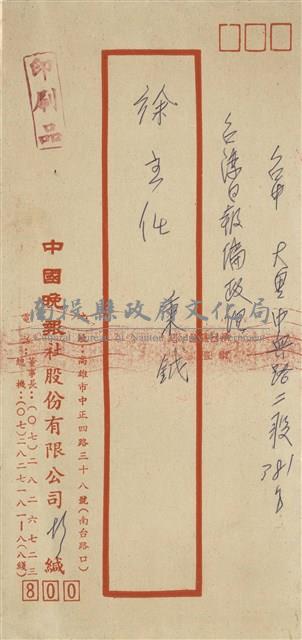 台中 大里中興路二段381号
台灣日報編政組
徐主任 秉鉞
印刷品
中國晚報社股份有限公司 緘
地址:高雄市中正四路三十八號(南台路口)
電話:董事長:(○七)二八二六七二三
總機:(○七)二八二七一八一~八(八線)
800
南投縣政府文化局
Cultural Bureau of Nantou County Government